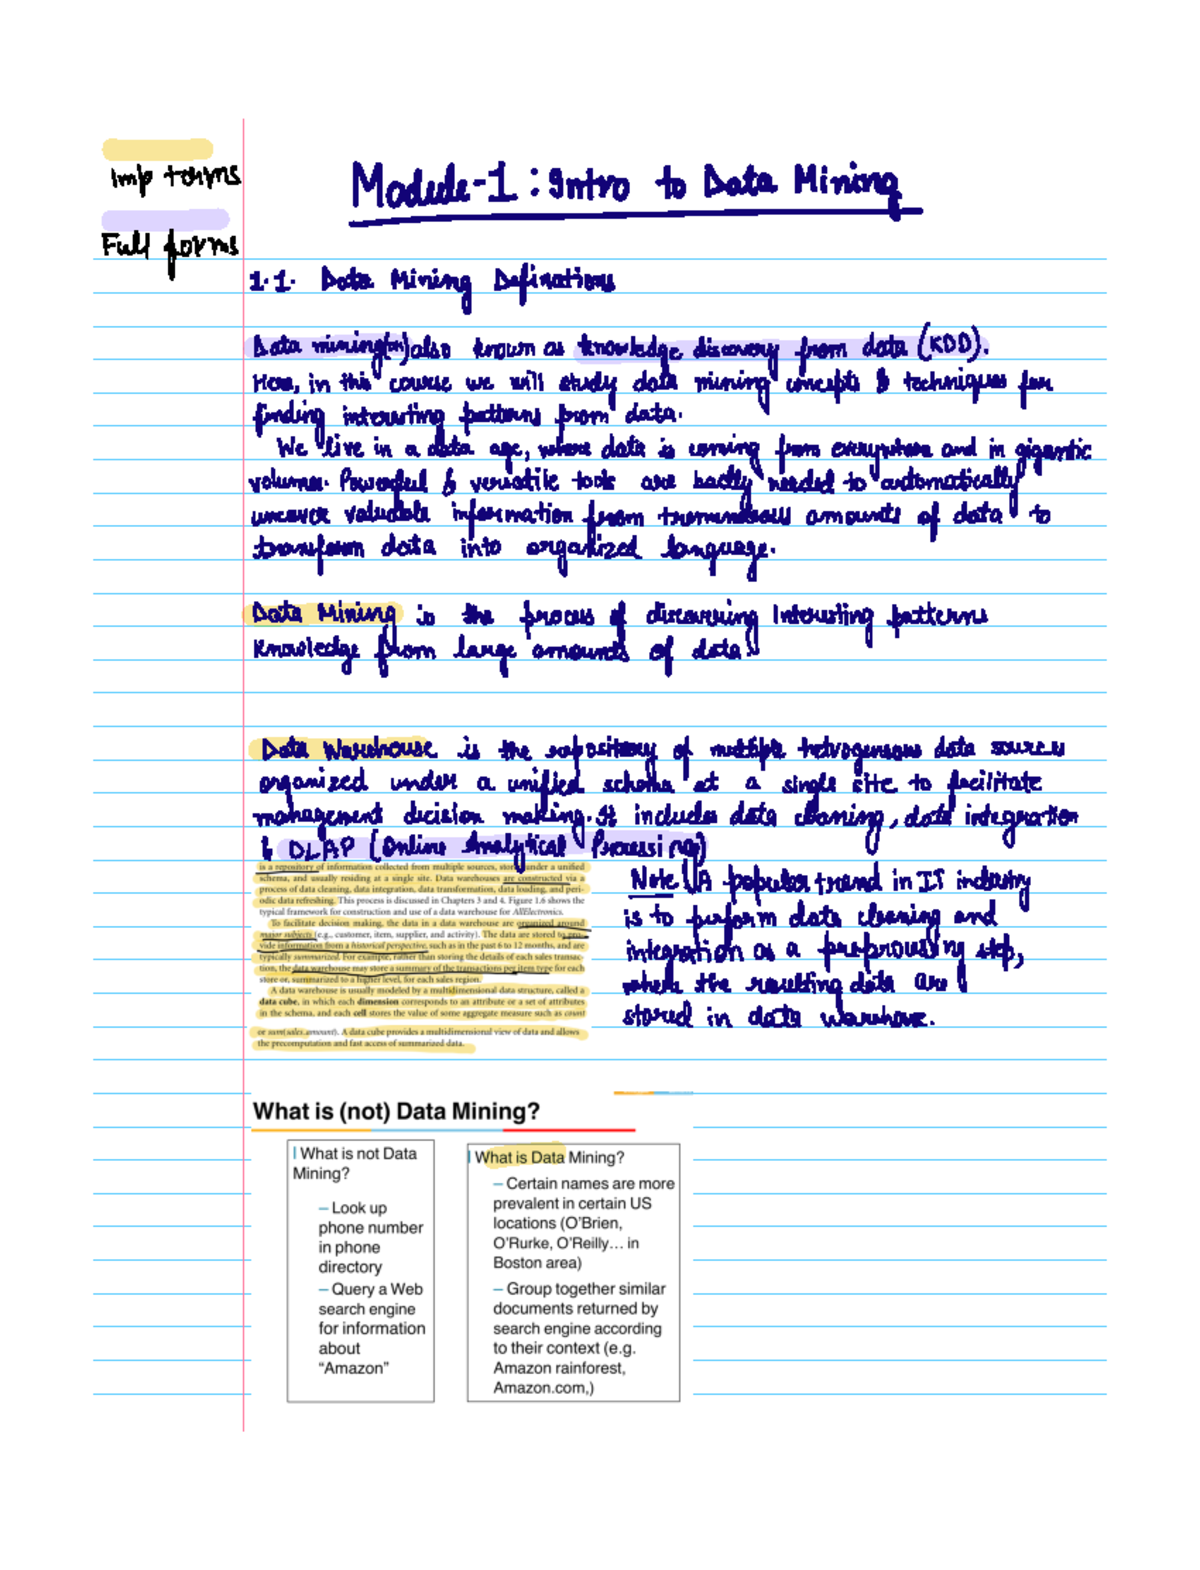 Imp terms
Full forms
Module-1 : Intro to Data Mining
1.1. Data Mining Definations
Data mining also known as knowledge discovery from data (KDD).
Here, in this course we will study data mining concepts & techniques for
finding interesting patterns from data.
We live in a data age, where data is coming from everywhere and in gigantic
volumes. Powerful & versatile tools are badly needed to automatically
uncover valuable information from tremendous amounts of data to
transform data into organized language.
Data Mining is the process of discovering Interesting patterns
Knowledge from large amounts of data.
Data Warehouse is the repository of multiple hetrogeneous data sources
organized under a unified schema at a single site to facilitate
management decision making. It includes data cleaning, data integration
& OLAP (Online Analytical Processing)
is a repository of information collected from multiple sources, stored under a unified
schema, and usually residing at a single site. Data warehouses are constructed via a
process of data cleaning, data integration, data transformation, data loading, and peri-
odic data refreshing. This process is discussed in Chapters 3 and 4. Figure 1.6 shows the
typical framework for construction and use of a data warehouse for AllElectronics.
To facilitate decision making, the data in a data warehouse are organized around
major subjects (e.g., customer, item, supplier, and activity). The data are stored to pro-
vide information from a historical perspective, such as in the past 6 to 12 months, and are
typically summarized. For example, rather than storing the details of each sales transac-
tion, the data warehouse may store a summary of the transactions per item type for each
store or, summarized to a higher level, for each sales region.
A data warehouse is usually modeled by a multidimensional data structure, called a
data cube, in which each dimension corresponds to an attribute or a set of attributes
in the schema, and each cell stores the value of some aggregate measure such as count
or sum(sales_amount). A data cube provides a multidimensional view of data and allows
the precomputation and fast access of summarized data.
Note: A popular trend in IT industry
is to perform data cleaning and
integration as a preprocessing step,
where the resulting data are
stored in data warehouse.
What is (not) Data Mining?
What is not Data
Mining?
– Look up
phone number
in phone
directory
– Query a Web
search engine
for information
about
“Amazon”
What is Data Mining?
– Certain names are more
prevalent in certain US
locations (O’Brien,
O’Rurke, O’Reilly… in
Boston area)
– Group together similar
documents returned by
search engine according
to their context (e.g.
Amazon rainforest,
Amazon.com,)